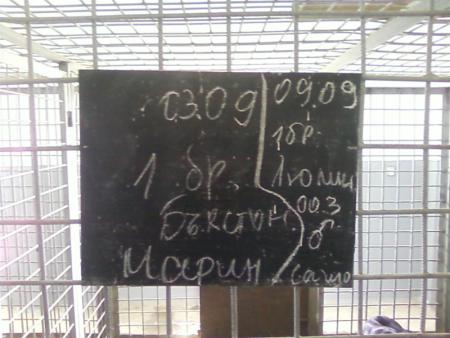 03.09
1 бр.
Бъкстон
Марин
09.09
1бр.
Люлин
00.3
♂
Сашо